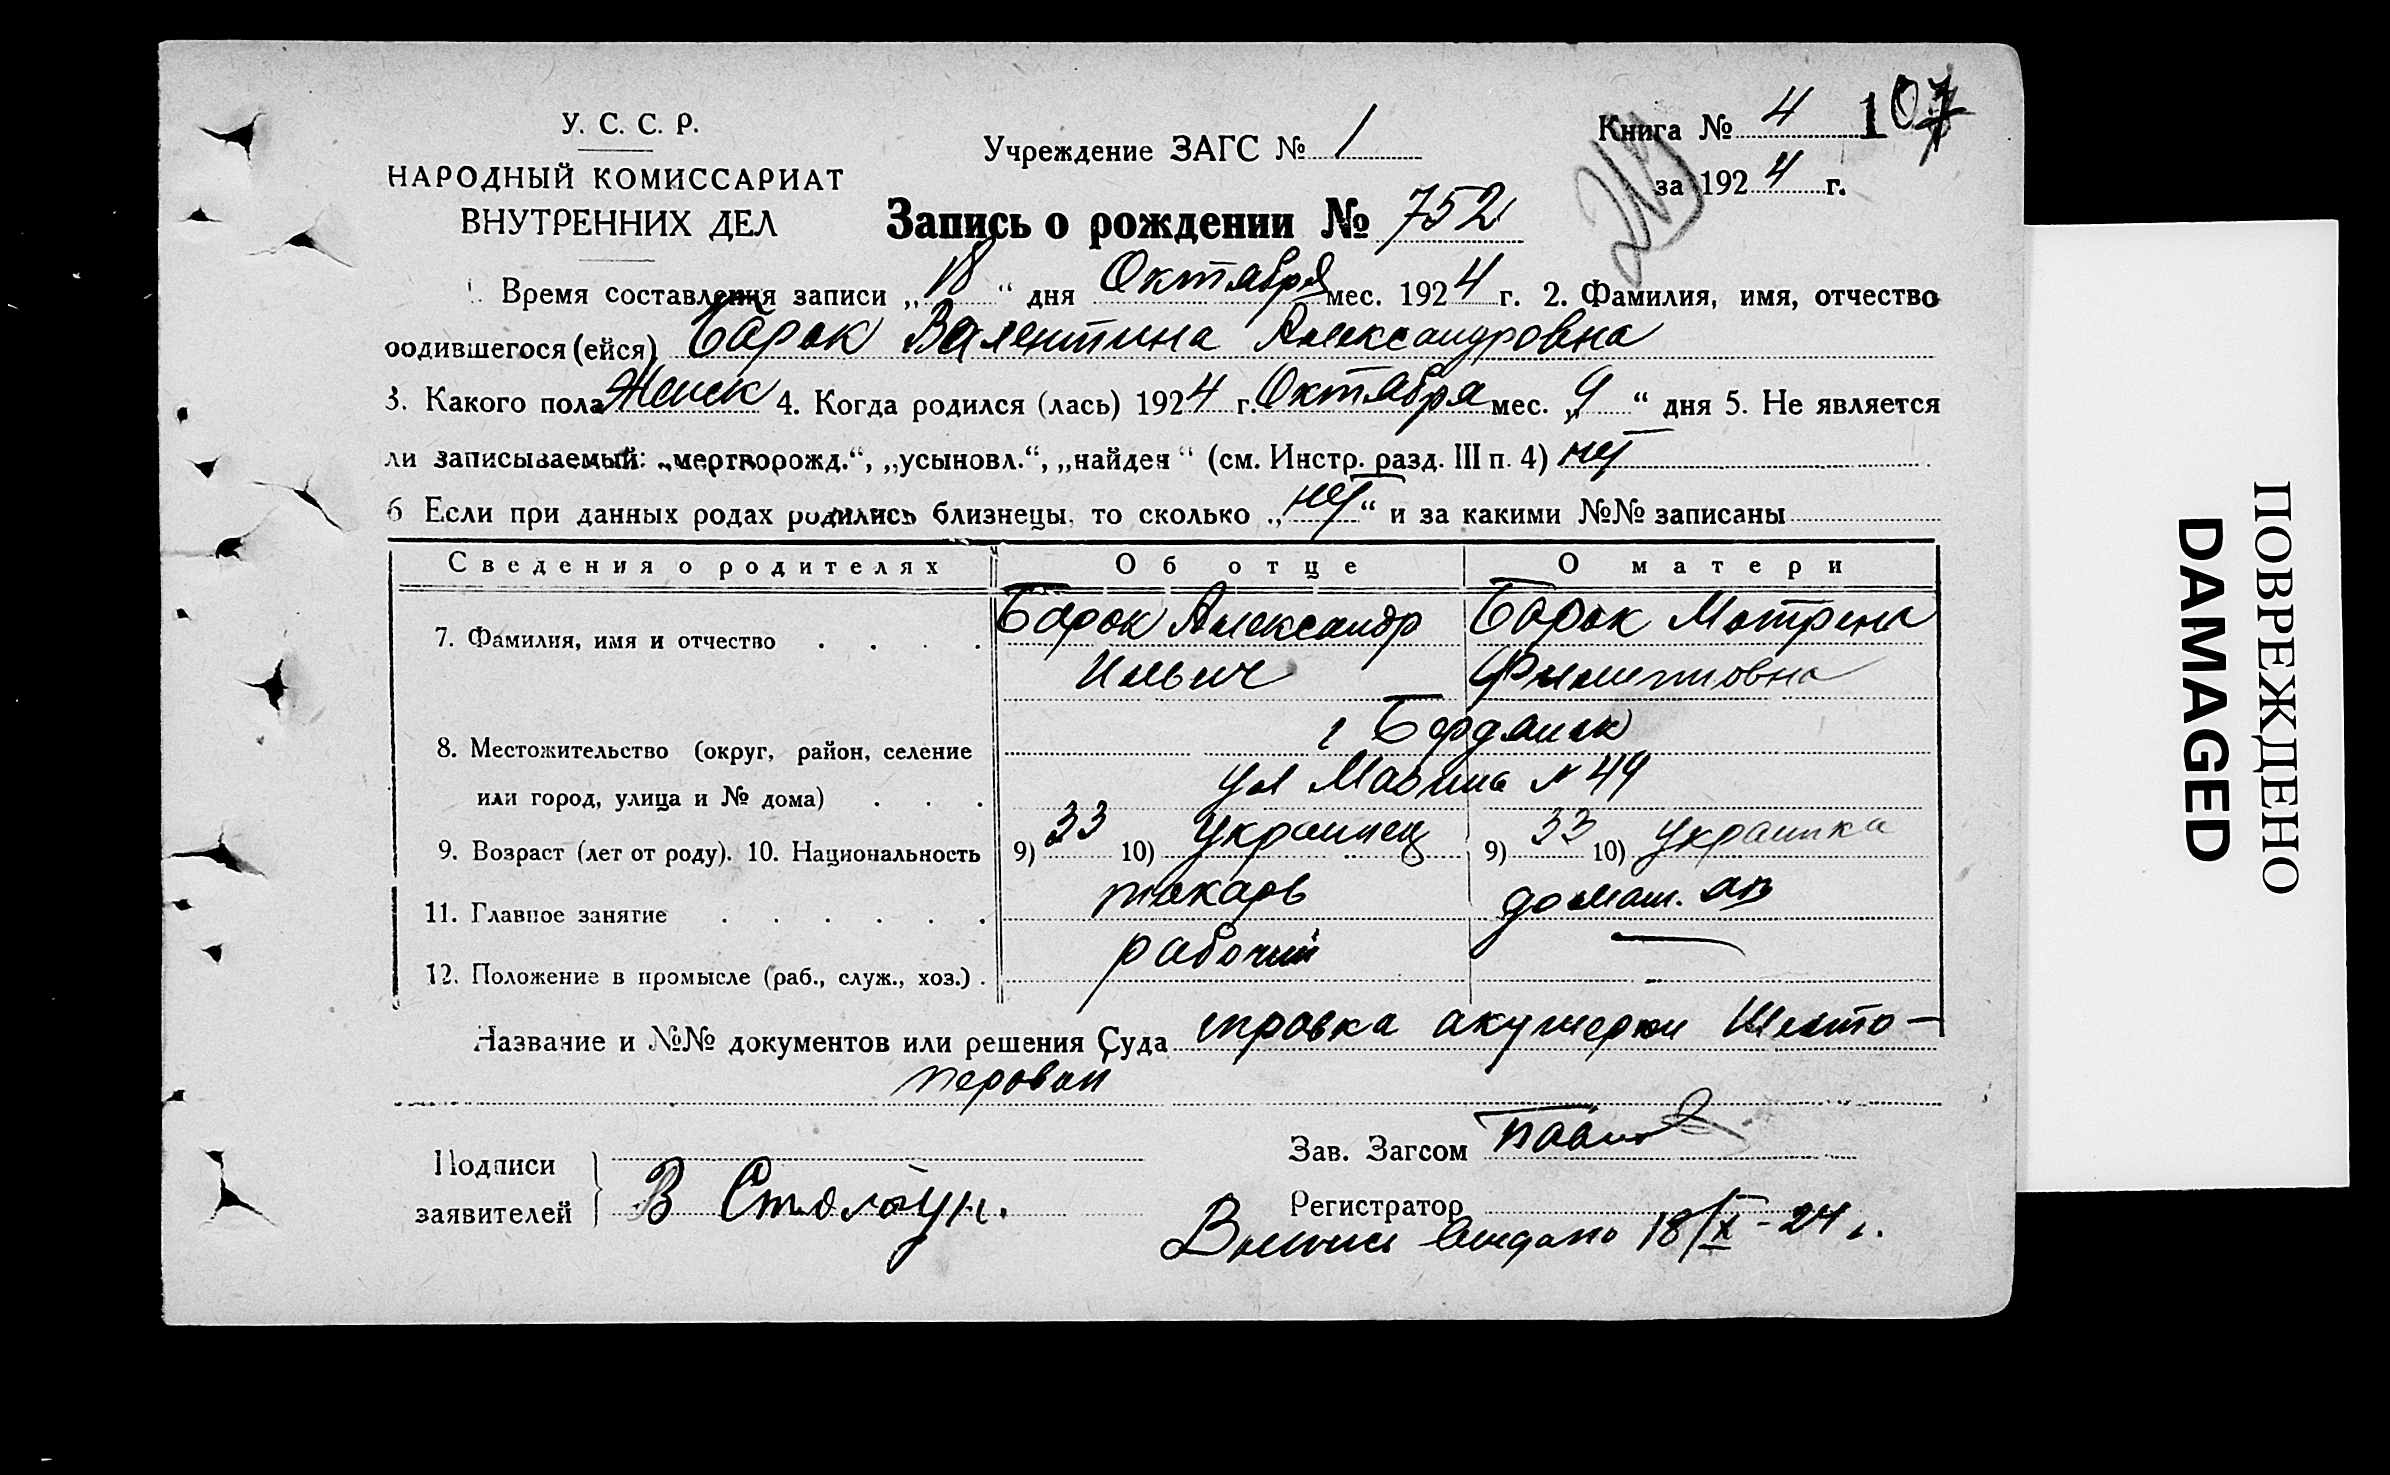 У. С. С. Р.
НАРОДНЫЙ КОМИССАРИАТ
ВНУТРЕННИХ ДЕЛ
Учреждение ЗАГС № 1
Книга № 4 107
за 1924 г.
Запись о рождении № 752
1. Время составления записи „18“ дня Октября мес. 1924 г. 2. Фамилия, имя, отчество
родившегося (ейся) Барок Валентина Александровна
3. Какого пола Женск 4. Когда родился (лась) 1924 г. Октября мес. „9“ дня 5. Не является
ли записываемый: „мертворожд.“, „усыновл.“, „найден“ (см. Инстр. разд. III п. 4) нет
6 Если при данных родах родились близнецы, то сколько „нет“ и за какими №№ записаны
Сведения о родителях Об отце О матери
7. Фамилия, имя и отчество . . . . Барок Александр Барок Мотрена
Ильич Филипповна
г Бердянск
8. Местожительство (округ, район, селение
или город, улица и № дома) . . . ул Мазина № 49
9. Возраст (лет от роду). 10. Национальность 9) 33 10) Украинец 9) 33 10) Украинка
11. Главное занятие . . . . . . токарь домаш. хоз
12. Положение в промысле (раб., служ., хоз.) . рабочий —
Название и №№ документов или решения Суда справка акушерки Шесто-
перовой
Подписи
заявителей
В Столбун.
Зав. Загсом
Регистратор
Выпись выдана 18/X-24 г.
ПОВРЕЖДЕНО
DAMAGED